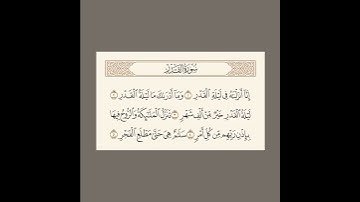 سُورَةُ ٱلْقَدْرِ
إِنَّآ أَنزَلْنَـٰهُ فِى لَيْلَةِ ٱلْقَدْرِ ۝١ وَمَآ أَدْرَىٰكَ مَا لَيْلَةُ ٱلْقَدْرِ ۝٢
لَيْلَةُ ٱلْقَدْرِ خَيْرٌ مِّنْ أَلْفِ شَهْرٍ ۝٣ تَنَزَّلُ ٱلْمَلَـٰٓئِكَةُ وَٱلرُّوحُ فِيهَا
بِإِذْنِ رَبِّهِم مِّن كُلِّ أَمْرٍ ۝٤ سَلَـٰمٌ هِىَ حَتَّىٰ مَطْلَعِ ٱلْفَجْرِ ۝٥